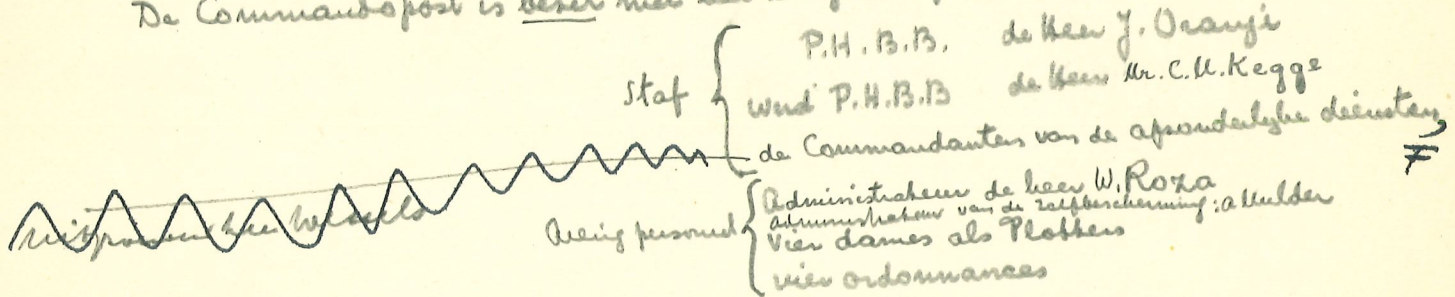 De Commandopost is bezet met
Staf
P.H.B.B. de Heer J. Oranji
wnd P.H.B.B de Heer Mr. C.M. Kegge
de Commandanten van de afzonderlijke diensten,
F
Overig personeel
Administrateur de heer W. Roza
administrateur van de zelfbescherming: a Mulder
Vier dames als Plotters
vier ordonnances